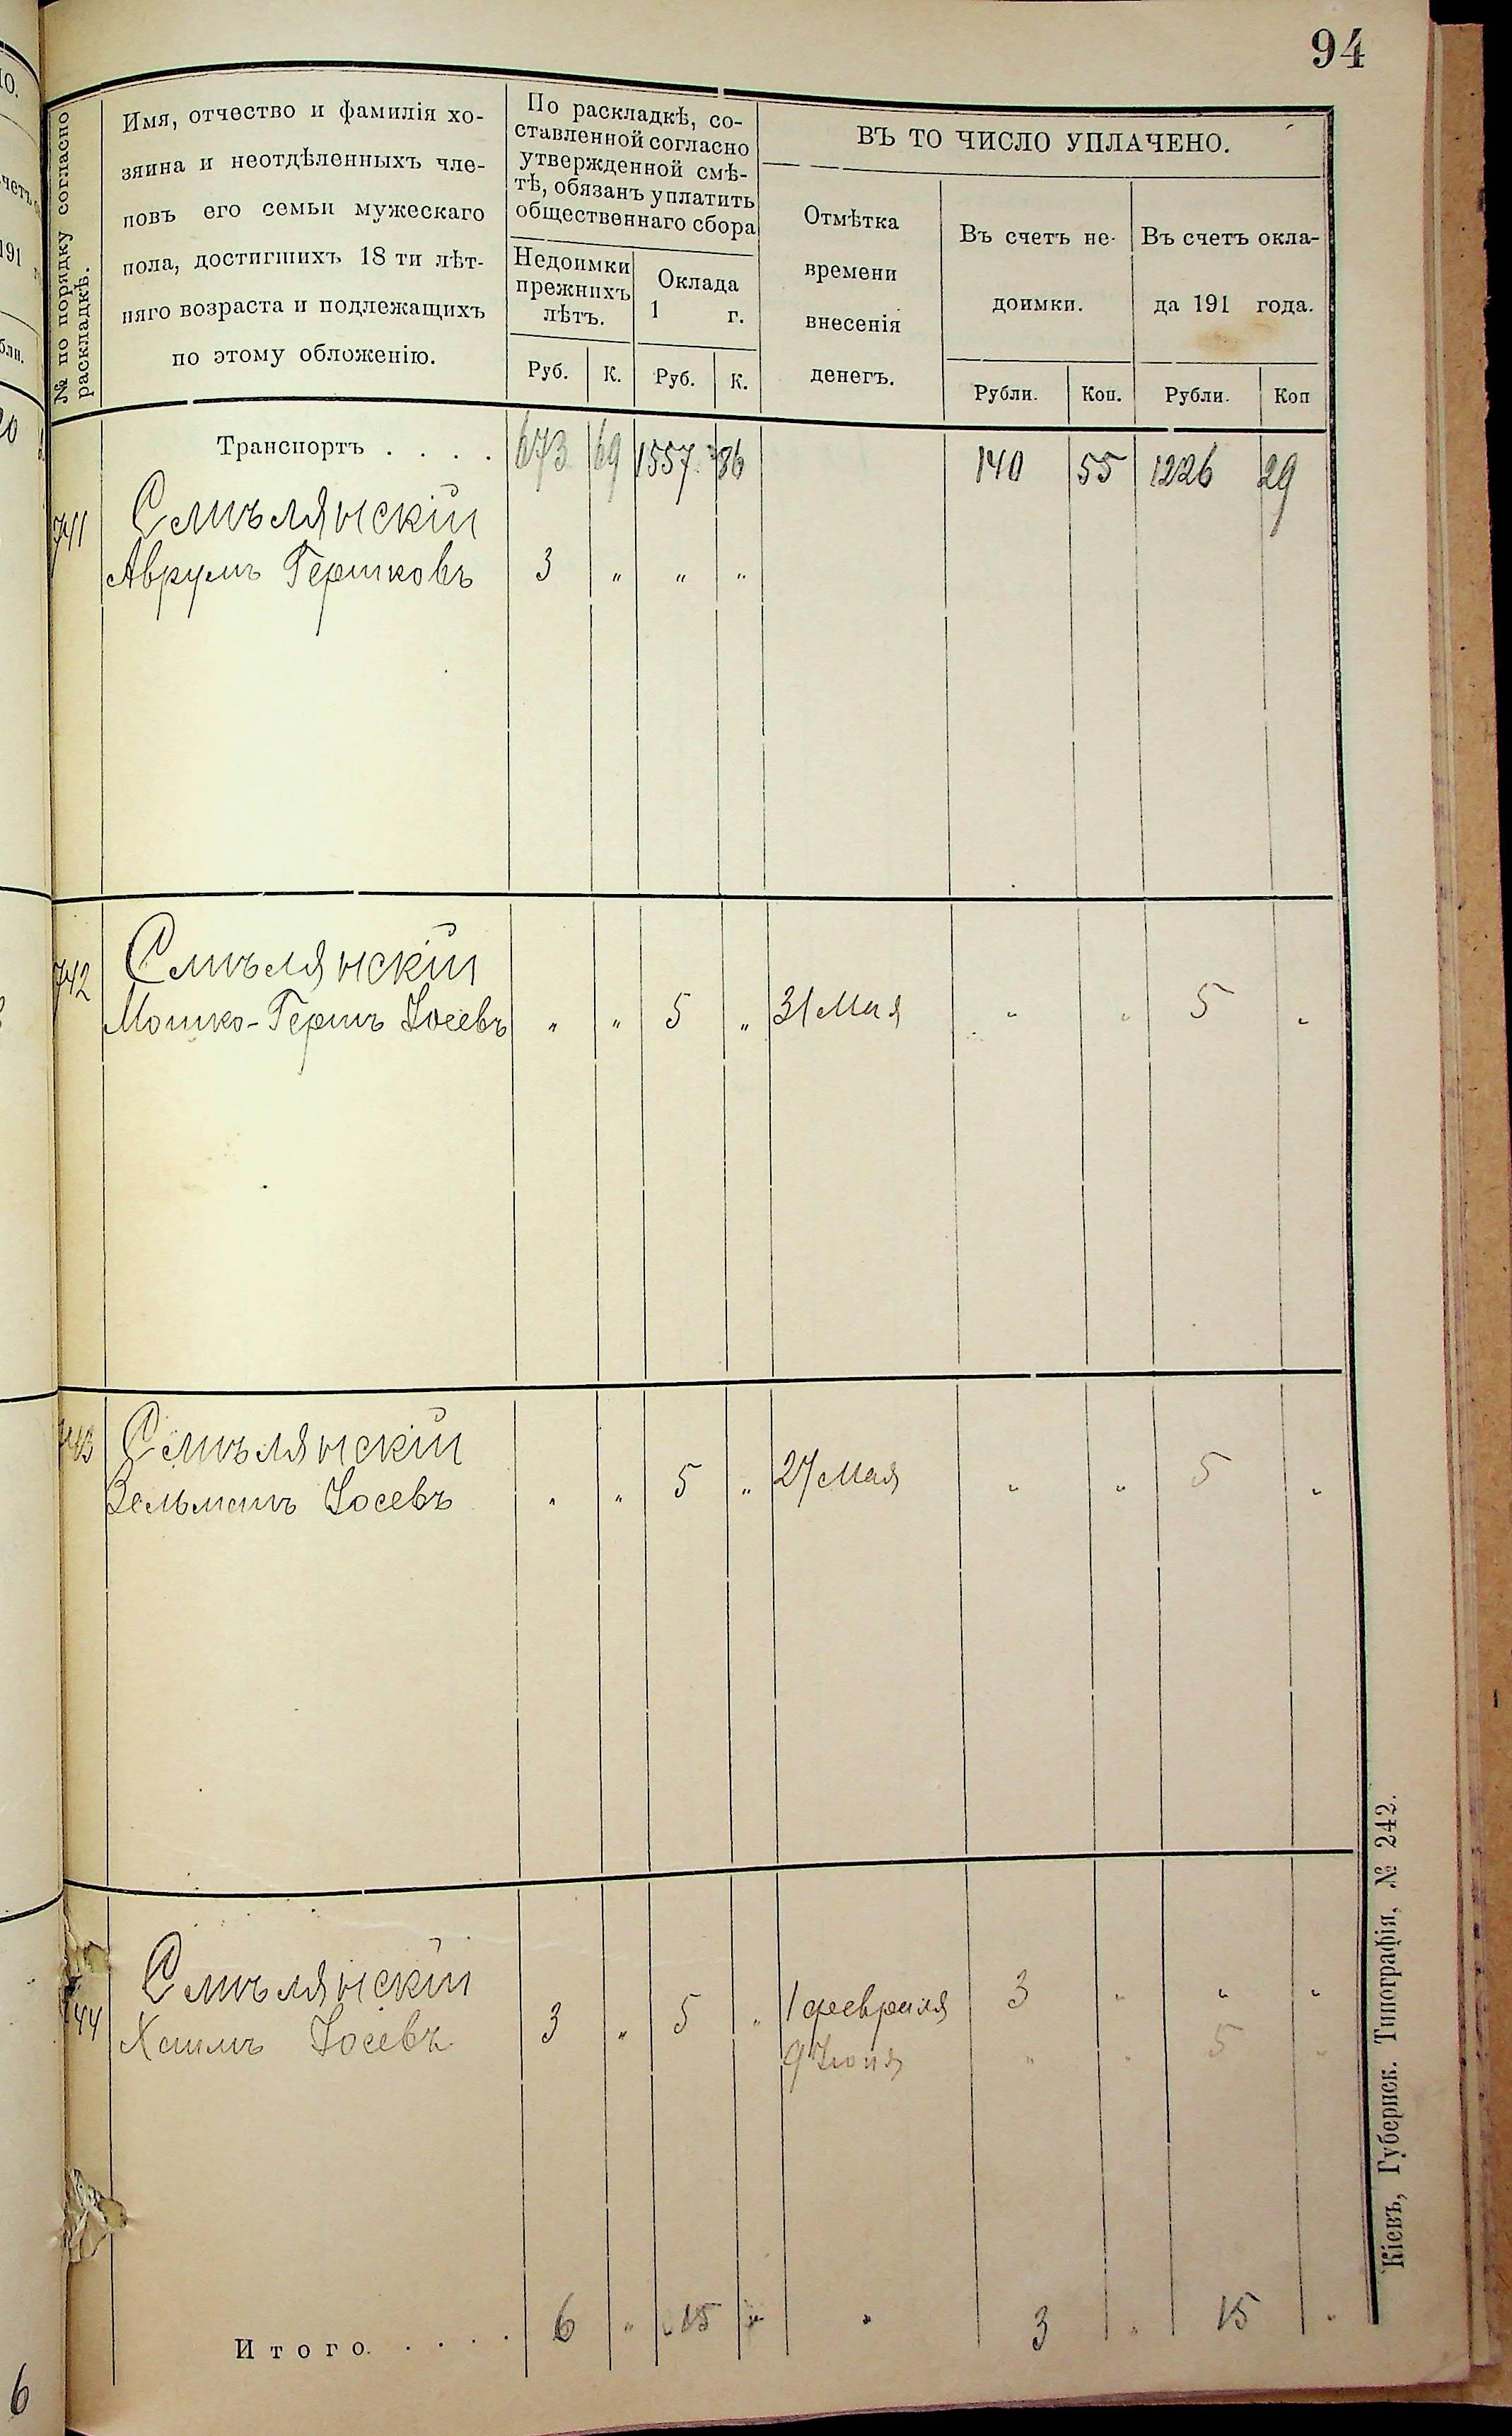 94
№ по порядку согласно
раскладкѣ.
Имя, отчество и фамилія хо-
зяина и неотдѣленныхъ чле-
новъ его семьи мужескаго
пола, достигшихъ 18 ти лѣт-
няго возраста и подлежащихъ
по этому обложенію.
По раскладкѣ, со-
ставленной согласно
утвержденной смѣ-
тѣ, обязанъ уплатить
общественнаго сбора
Недоимки
прежнихъ
лѣтъ.
Оклада
1 г.
Руб. К. Руб. К.
ВЪ ТО ЧИСЛО УПЛАЧЕНО.
Отмѣтка
времени
внесенія
денегъ.
Въ счетъ не-
доимки.
Въ счетъ окла-
да 191 года.
Рубли. Коп. Рубли. Коп
Транспортъ . . . . 673 69 1557 86 140 55 1226 29
741 Смѣлянскій
Аврумъ Гершковъ 3 " " "
742 Смѣлянскій
Мошко-Гершъ Іосевъ " " 5 " 31 Мая " " 5 "
743 Смѣлянскій
Зельманъ Іосевъ " " 5 " 27 Мая " " 5 "
744 Смѣлянскій
Хаимъ Іосевъ 3 " 5 " 1 февраля 3 " " "
9 Іюня " " 5 "
Итого. . . . . 6 " 15 " " 3 " 15 "
Кіевъ, Губернск. Типографія, № 242.
6